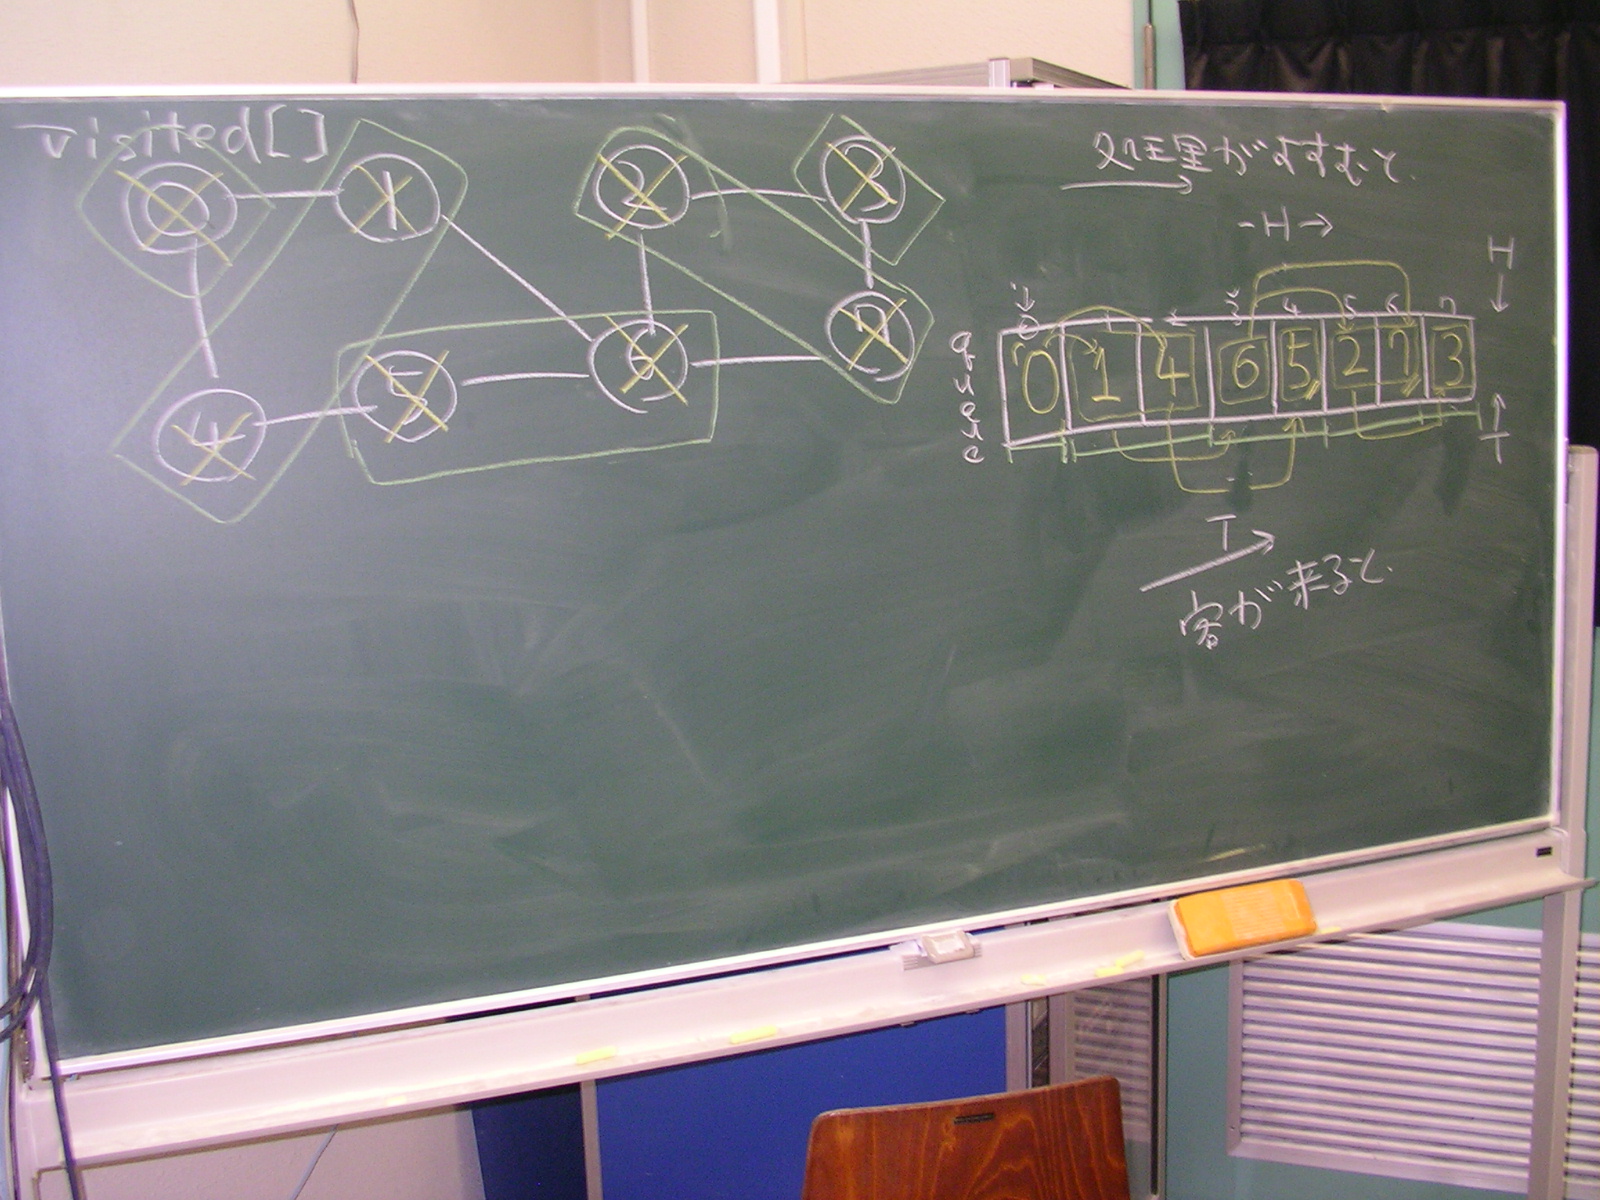 visited[]
0 1 2 3
4 5 6 7
処理がすすむと.
-H→
H
↓
0 3 4 5 6 7
queue
0 1 4 6 5 2 7 3
↑
T
T
客が来ると.